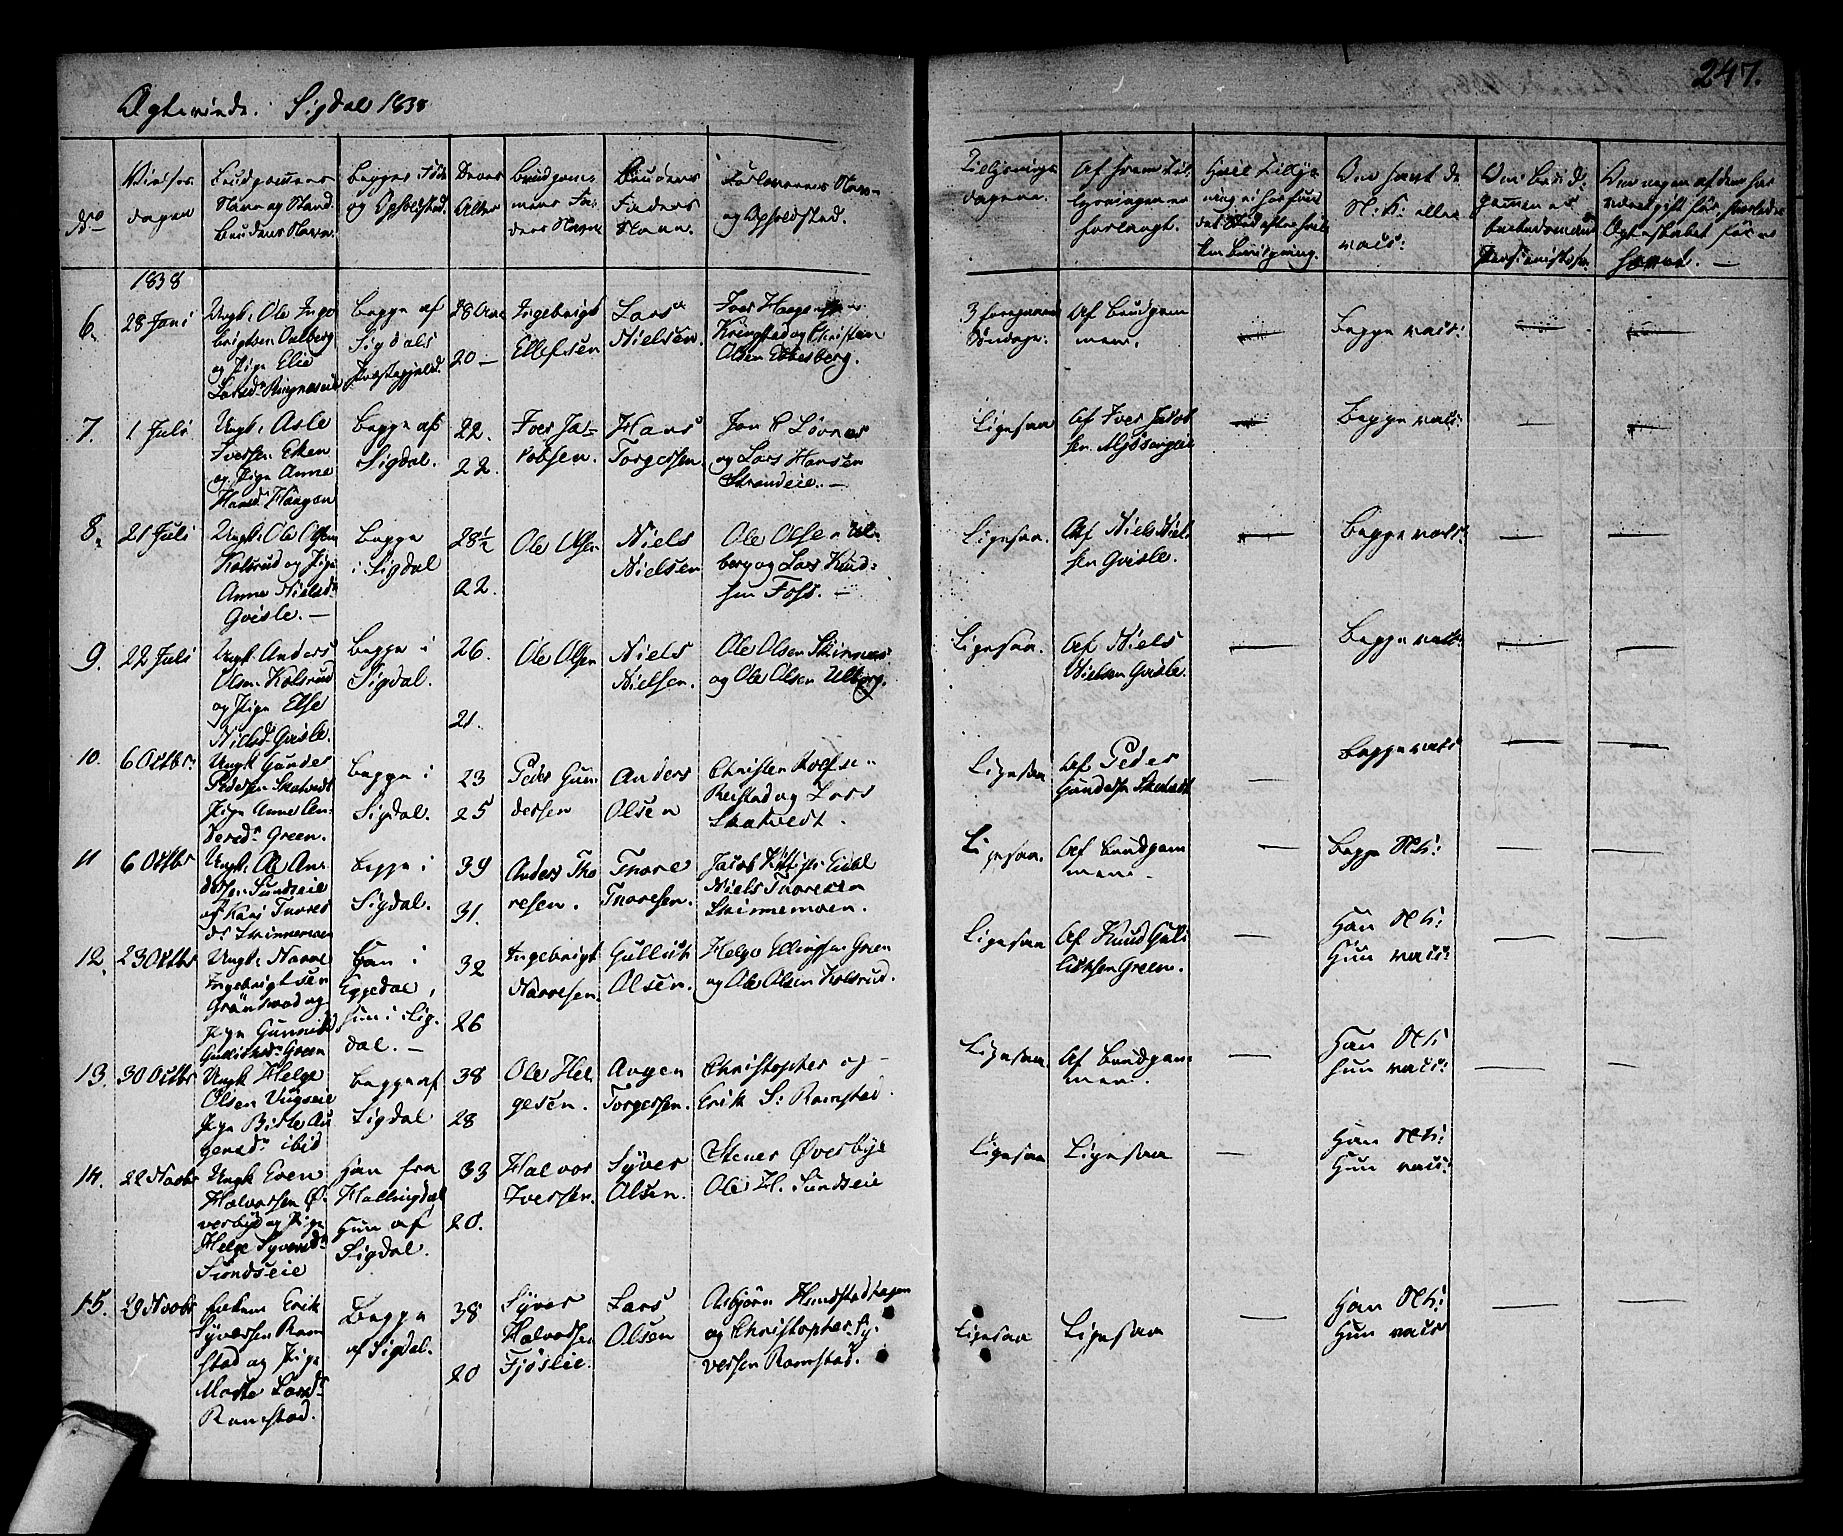 Ægteviede. Sigdal 1838
247.
No
Vielses
dagen
Brudgommens
Navn og Stand.
Brudens Navn.
Begges Føde
og Opholdsted.
Deres
Alder
Brudgom-
mens Fa-
ders Navn
Brudens
Faders
Navn.
Forlovernes Navn
og Opholdsted.
Tillysnings
dagene.
Af hvem Til-
lysningen er
forlangt.
Om havt de
N. K: eller
vacc:
1838
6.
28 Juni
Ungk. Ole Inge
brigtsen Aalberg
og Pige Eli
Larsd. Ringnæseie
Begge af
Sigdals
Præstegjeld.
28 Aar
20 —
Ingebrigt
Ellefsen
Lars
Nielsen.
Iver Haagensen
Kringstad og Christen
Olsen
3 foregaaende
Søndage.
Af Brudgom
men.
Begge vacc:
7.
1 Juli
Ungk. Asle
Iversen Eken
og Pige Anne
Hansd. Haugan
Begge af
Sigdal.
22.
22.
Iver Ja-
cobsen.
Hans
Torgersen.
Jon C Lövnæs
og Lars Hansen
Strandeie. —
Ligesaa
Af Iver Jacob
sen
Begge vacc:
8.
21 Juli
Ungk. Ole Olsen
Kolsrud og Pige
Anne Nielsd.
Gvisle. —
Begge
i Sigdal
28½
22.
Ole Olsen
Niels
Nielsen
Ole Olsen Ul-
berg og Lars Knud-
sen Foss. —
Ligesaa.
Af Niels Niel
sen Gvisle.
Begge vacc:
9.
22 Juli
Ungk. Anders
Olsen Kolsrud
og Pige Else
Nielsd. Gvisle.
Begge i
Sigdal.
26.
21.
Ole Olsen
Niels
Nielsen.
Ole Olsen Skinnes
og Ole Olsen Ulberg.
Ligesaa.
Af Niels
Nielsen Gvisle.
Begge vacc:
10.
6 Octbr.
Ungk Gunder
Pedersen Skatvedt
Pige Anne An-
dersd. Green.
Begge i
Sigdal.
23
25
Peder Gun-
dersen
Anders
Olsen
Christen Kolfsen
Reistad og Lars
Skatvedt.
Ligesaa
Af Peder
Gundersen Skatvedt
Begge vacc
11
6 Octbr
Ungk. Ole An-
dersen Sundseie
og Kari Thores
d. Skinnemoen
Begge i
Sigdal.
39
31.
Anders Tho
resen.
Thore
Thoresen.
Jacob
Niels Thoresen
Skinnemoen.
Ligesaa.
Af Brudgom
men.
Begge N K:
12.
23 Octbr
Ungk. Narve
Ingebrigtsen
Grönhovd og
Pige Gunnild
Gulliksd. Green
Han i
Eggedal,
hun i Sig-
dal. —
32
26
Ingebrigt
Narvesen.
Gullik
Olsen.
Helge Ellingsen Green
og Ole Olsen Kolsrud.
Ligesaa
Af Knud Gul-
liksen Green.
Han N K:
Hun vacc:
13.
30 Octbr
Ungk Helge
Olsen Vugseie
Pige Birte Au
gensd. ibid
Begge af
Sigdal
38
28
Ole Hel
gesen.
Augen
Torgersen.
Christopher og
Erik S: Ramstad.
Ligesaa
Af Brudgom-
men.
Han N K:
hun vacc:
14.
22 Novbr
Ungk Even
Halvorsen Ø-
verbye og Pige
Helge Syversd.
Sundseie
Han fra
Hallingdal
Hun af
Sigdal.
33
20.
Halvor
Iversen.
Syver
Olsen.
Stener Øverbye
Ole H. Sundseie
Ligesaa
Ligesaa
Han N K:
Hun vacc:
15.
29 Novbr
Enkem Erik
Syversen Ram
stad og Pige
Marte Larsd.
Ramstad.
Begge
af Sigdal.
38
20
Syver
Halvorsen
Fjöseie.
Lars
Olsen
Asbjörn Hundstadhagen
og Christopher Sy-
versen Ramstad.
Ligesaa
Ligesaa
Han N K:
Hun vacc